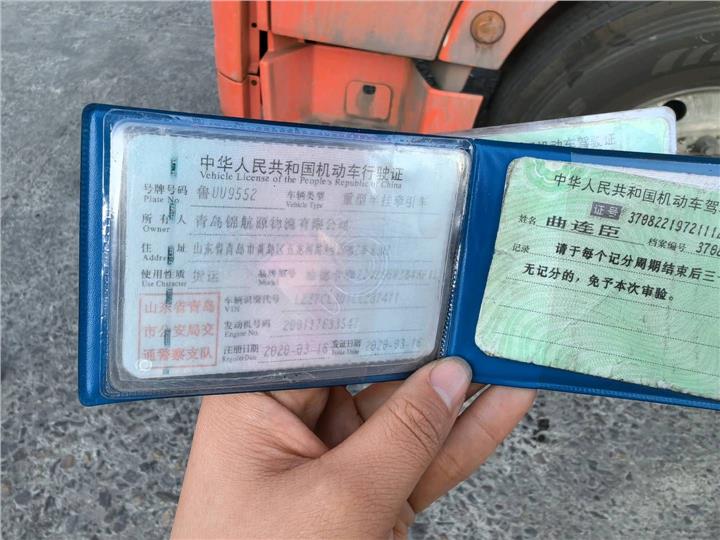 中华人民共和国机动车行驶证
Vehicle License of the People's Republic of China
号牌号码 鲁UU9552 车辆类型 重型半挂牵引车
Plate No. Vehicle Type
所有人 青岛锦航源物流有限公司
Owner
住址 山东省青岛市黄岛区
Address
使用性质 货运 品牌型号
Use Character Model
山东省青岛
市公安局交
通警察支队
车辆识别代号
VIN
发动机号码
Engine No.
注册日期 2020-03-16 发证日期 2020-03-16
Register Date Issue Date
中华人民共和国机动车驾
证号 37082219721112
姓名 曲连臣 档案编号 3708
记录 请于每个记分周期结束后三
无记分的，免予本次审验。
机动车驾驶证